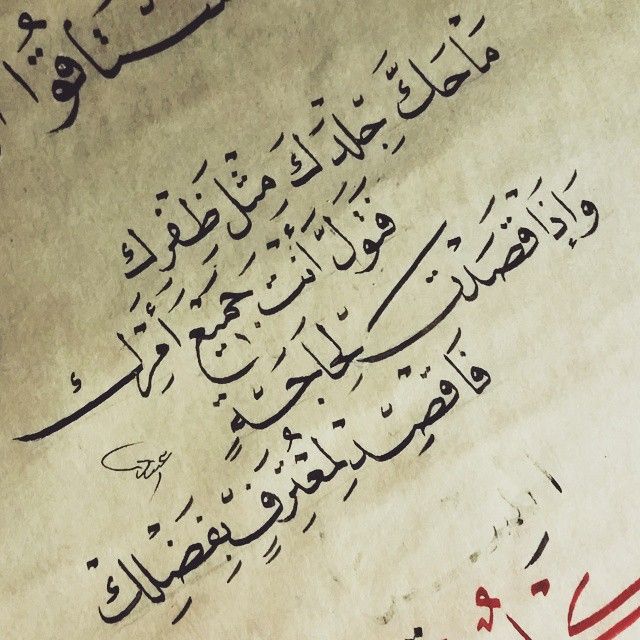 مَا حَكَّ جِلْدَكَ مِثْلُ ظُفْرِكَ
فَتَوَلَّ أَنْتَ جَمِيْعَ أَمْرِكَ
وَإِذَا قَصَدْتَ لِحَاجَةٍ
فَاقْصِدْ لِمُعْتَرِفٍ بِفَضْلِكَ